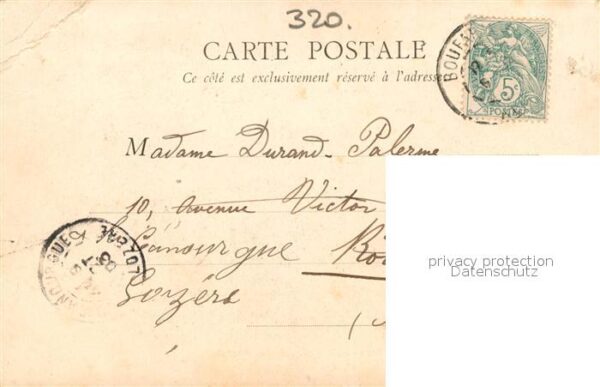 320.
CARTE POSTALE
Ce côté est exclusivement réservé à l'adresse
5c
POSTES
Madame Durand-Palerme
10, Avenue Victor
La Canourgue
Lozère
LOZERE
privacy protection
Datenschutz